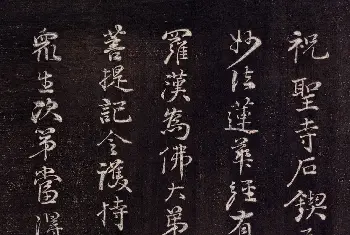 祝聖寺石鍥
妙法蓮華經有
羅漢為佛大弟
菩提記令護持
眾生次第當得